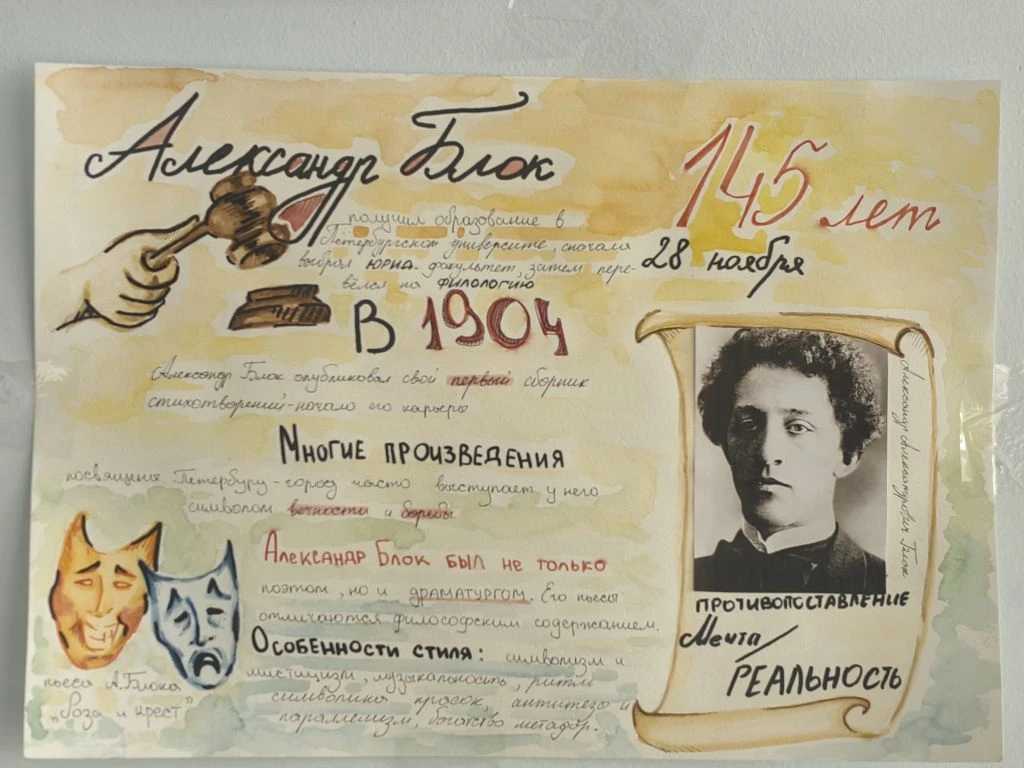 Александр Блок
145 лет
28 ноября
получил образование в
Петербургском университете, сначала
выбрал ЮРИД. факультет, затем пере-
вёлся на ФИЛОЛОГИЮ
В 1904
Александр Блок опубликовал свой первый сборник
стихотворений - начало его карьеры
МНОГИЕ ПРОИЗВЕДЕНИЯ
посвящения Петербургу - город часто выступает у него
символом вечности и борьбы
АЛЕКСАНДР БЛОК БЫЛ НЕ ТОЛЬКО
поэтом, но и ДРАМАТУРГОМ. Его пьесы
отличаются философским содержанием.
ОСОБЕННОСТИ СТИЛЯ: символизм и
мистицизм, музыкальность, ритм
символика красок, антитеза и
параллелизм, богатство метафор.
пьеса А.Блока
„Роза и крест"
Александр Александрович Блок
ПРОТИВОПОСТАВЛЕНИЕ
Мечта/
РЕАЛЬНОСТЬ